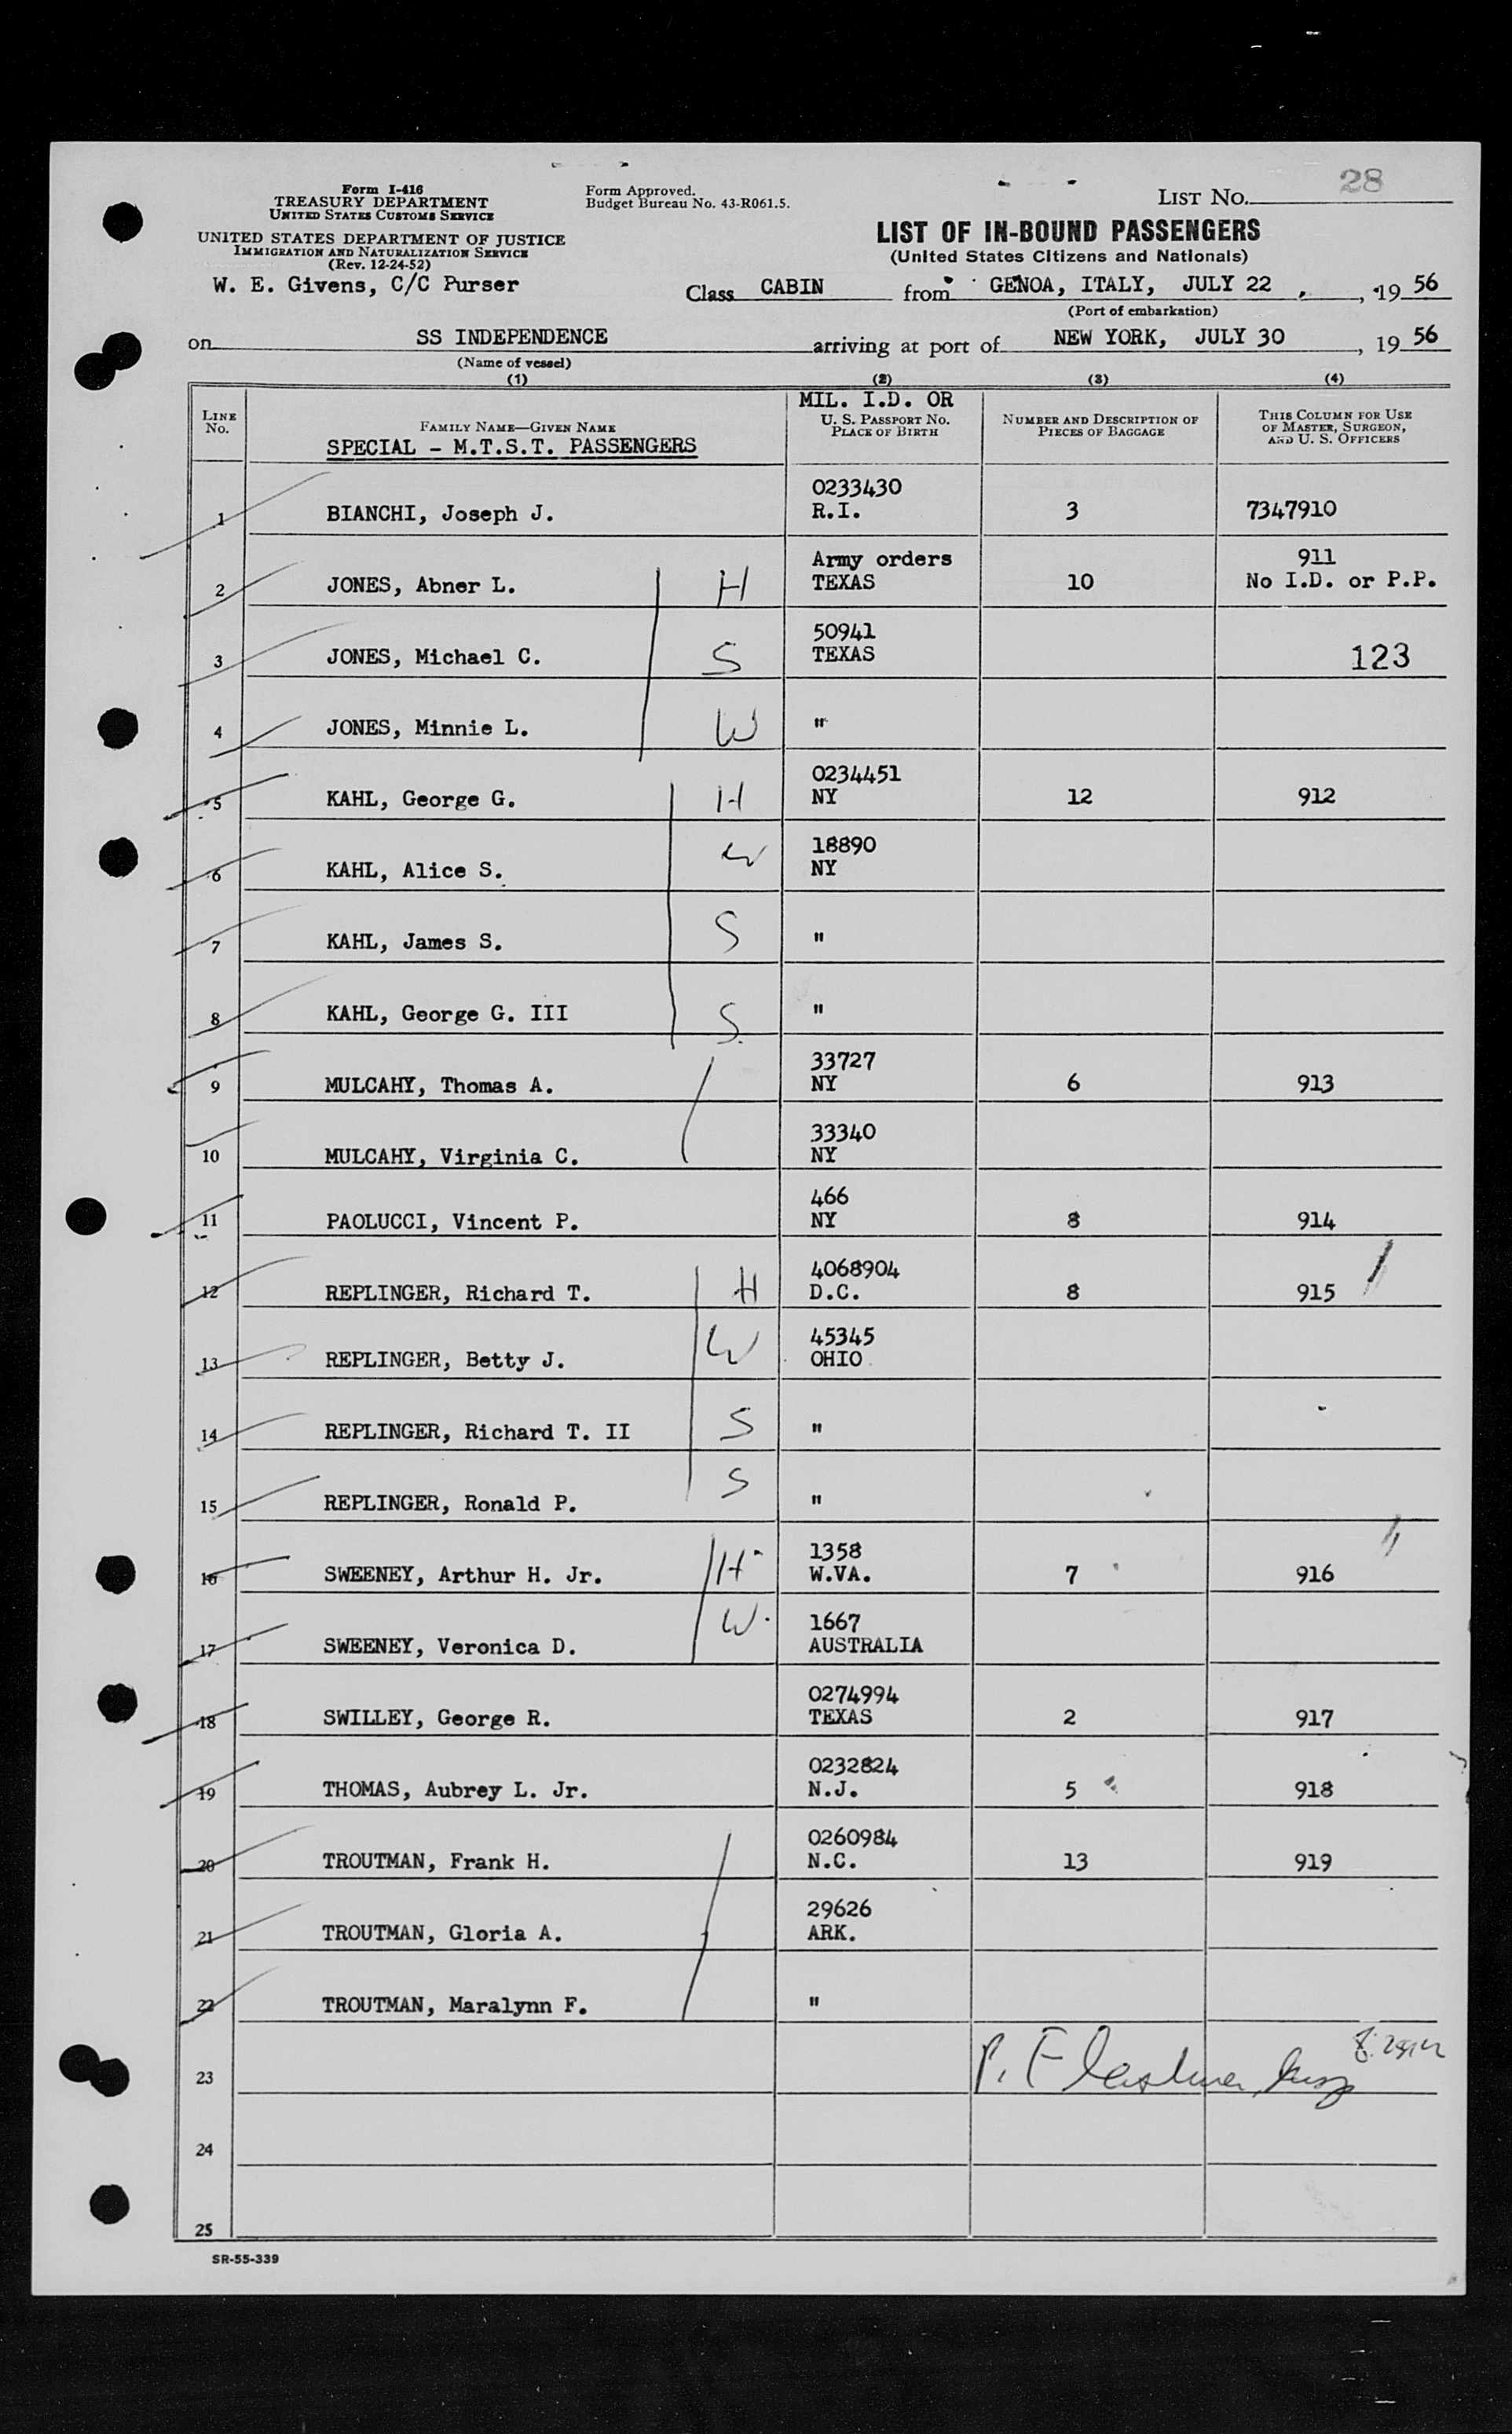 28
Form I-416
TREASURY DEPARTMENT
UNITED STATES CUSTOMS SERVICE
Form Approved.
Budget Bureau No. 43-R061.5.
LIST NO.
UNITED STATES DEPARTMENT OF JUSTICE
IMMIGRATION AND NATURALIZATION SERVICE
(Rev. 12-24-52)
LIST OF IN-BOUND PASSENGERS
(United States Citizens and Nationals)
W. E. Givens, C/C Purser
Class CABIN from GENOA, ITALY, JULY 22, 19 56
(Port of embarkation)
on SS INDEPENDENCE arriving at port of NEW YORK, JULY 30, 19 56
(Name of vessel)
(1) (2) (3) (4)
LINE NO.
FAMILY NAME—GIVEN NAME
SPECIAL - M.T.S.T. PASSENGERS
MIL. I.D. OR
U. S. PASSPORT NO.
PLACE OF BIRTH
NUMBER AND DESCRIPTION OF
PIECES OF BAGGAGE
THIS COLUMN FOR USE
OF MASTER, SURGEON,
AND U. S. OFFICERS
0233430
1 BIANCHI, Joseph J. R.I. 3 7347910
Army orders 911
2 JONES, Abner L. H TEXAS 10 No I.D. or P.P.
50941
3 JONES, Michael C. S TEXAS 123
4 JONES, Minnie L. W "
0234451
5 KAHL, George G. H NY 12 912
18890
6 KAHL, Alice S. W NY
7 KAHL, James S. S "
8 KAHL, George G. III S "
33727
9 MULCAHY, Thomas A. NY 6 913
33340
10 MULCAHY, Virginia C. NY
466
11 PAOLUCCI, Vincent P. NY 8 914
4068904
12 REPLINGER, Richard T. H D.C. 8 915
45345
13 REPLINGER, Betty J. W OHIO
14 REPLINGER, Richard T. II S "
15 REPLINGER, Ronald P. S "
1358
16 SWEENEY, Arthur H. Jr. H W.VA. 7 916
1667
17 SWEENEY, Veronica D. W AUSTRALIA
0274994
18 SWILLEY, George R. TEXAS 2 917
0232824
19 THOMAS, Aubrey L. Jr. N.J. 5 918
0260984
20 TROUTMAN, Frank H. N.C. 13 919
29626
21 TROUTMAN, Gloria A. ARK.
22 TROUTMAN, Maralynn F. "
23
24
25
SR-55-339